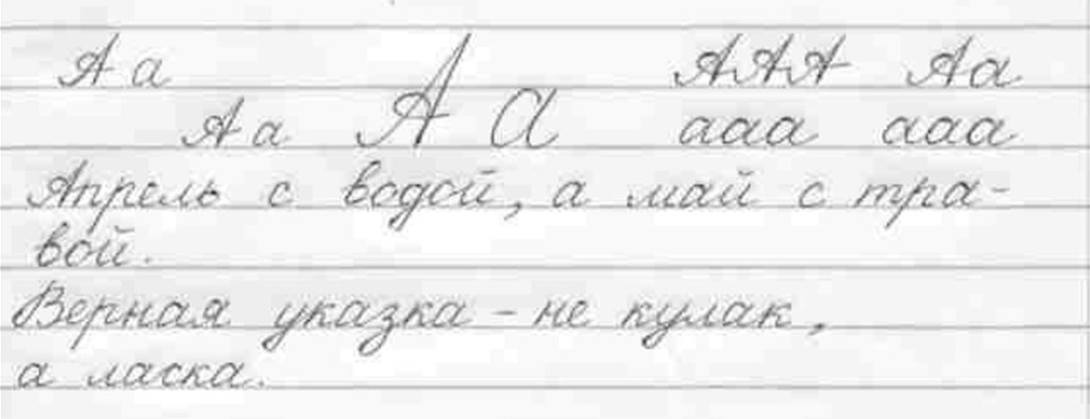 А а А а ААА Аа
Аа ааа ааа
Апрель с водой, а май с тра-
вой.
Верная указка - не кулак,
а ласка.